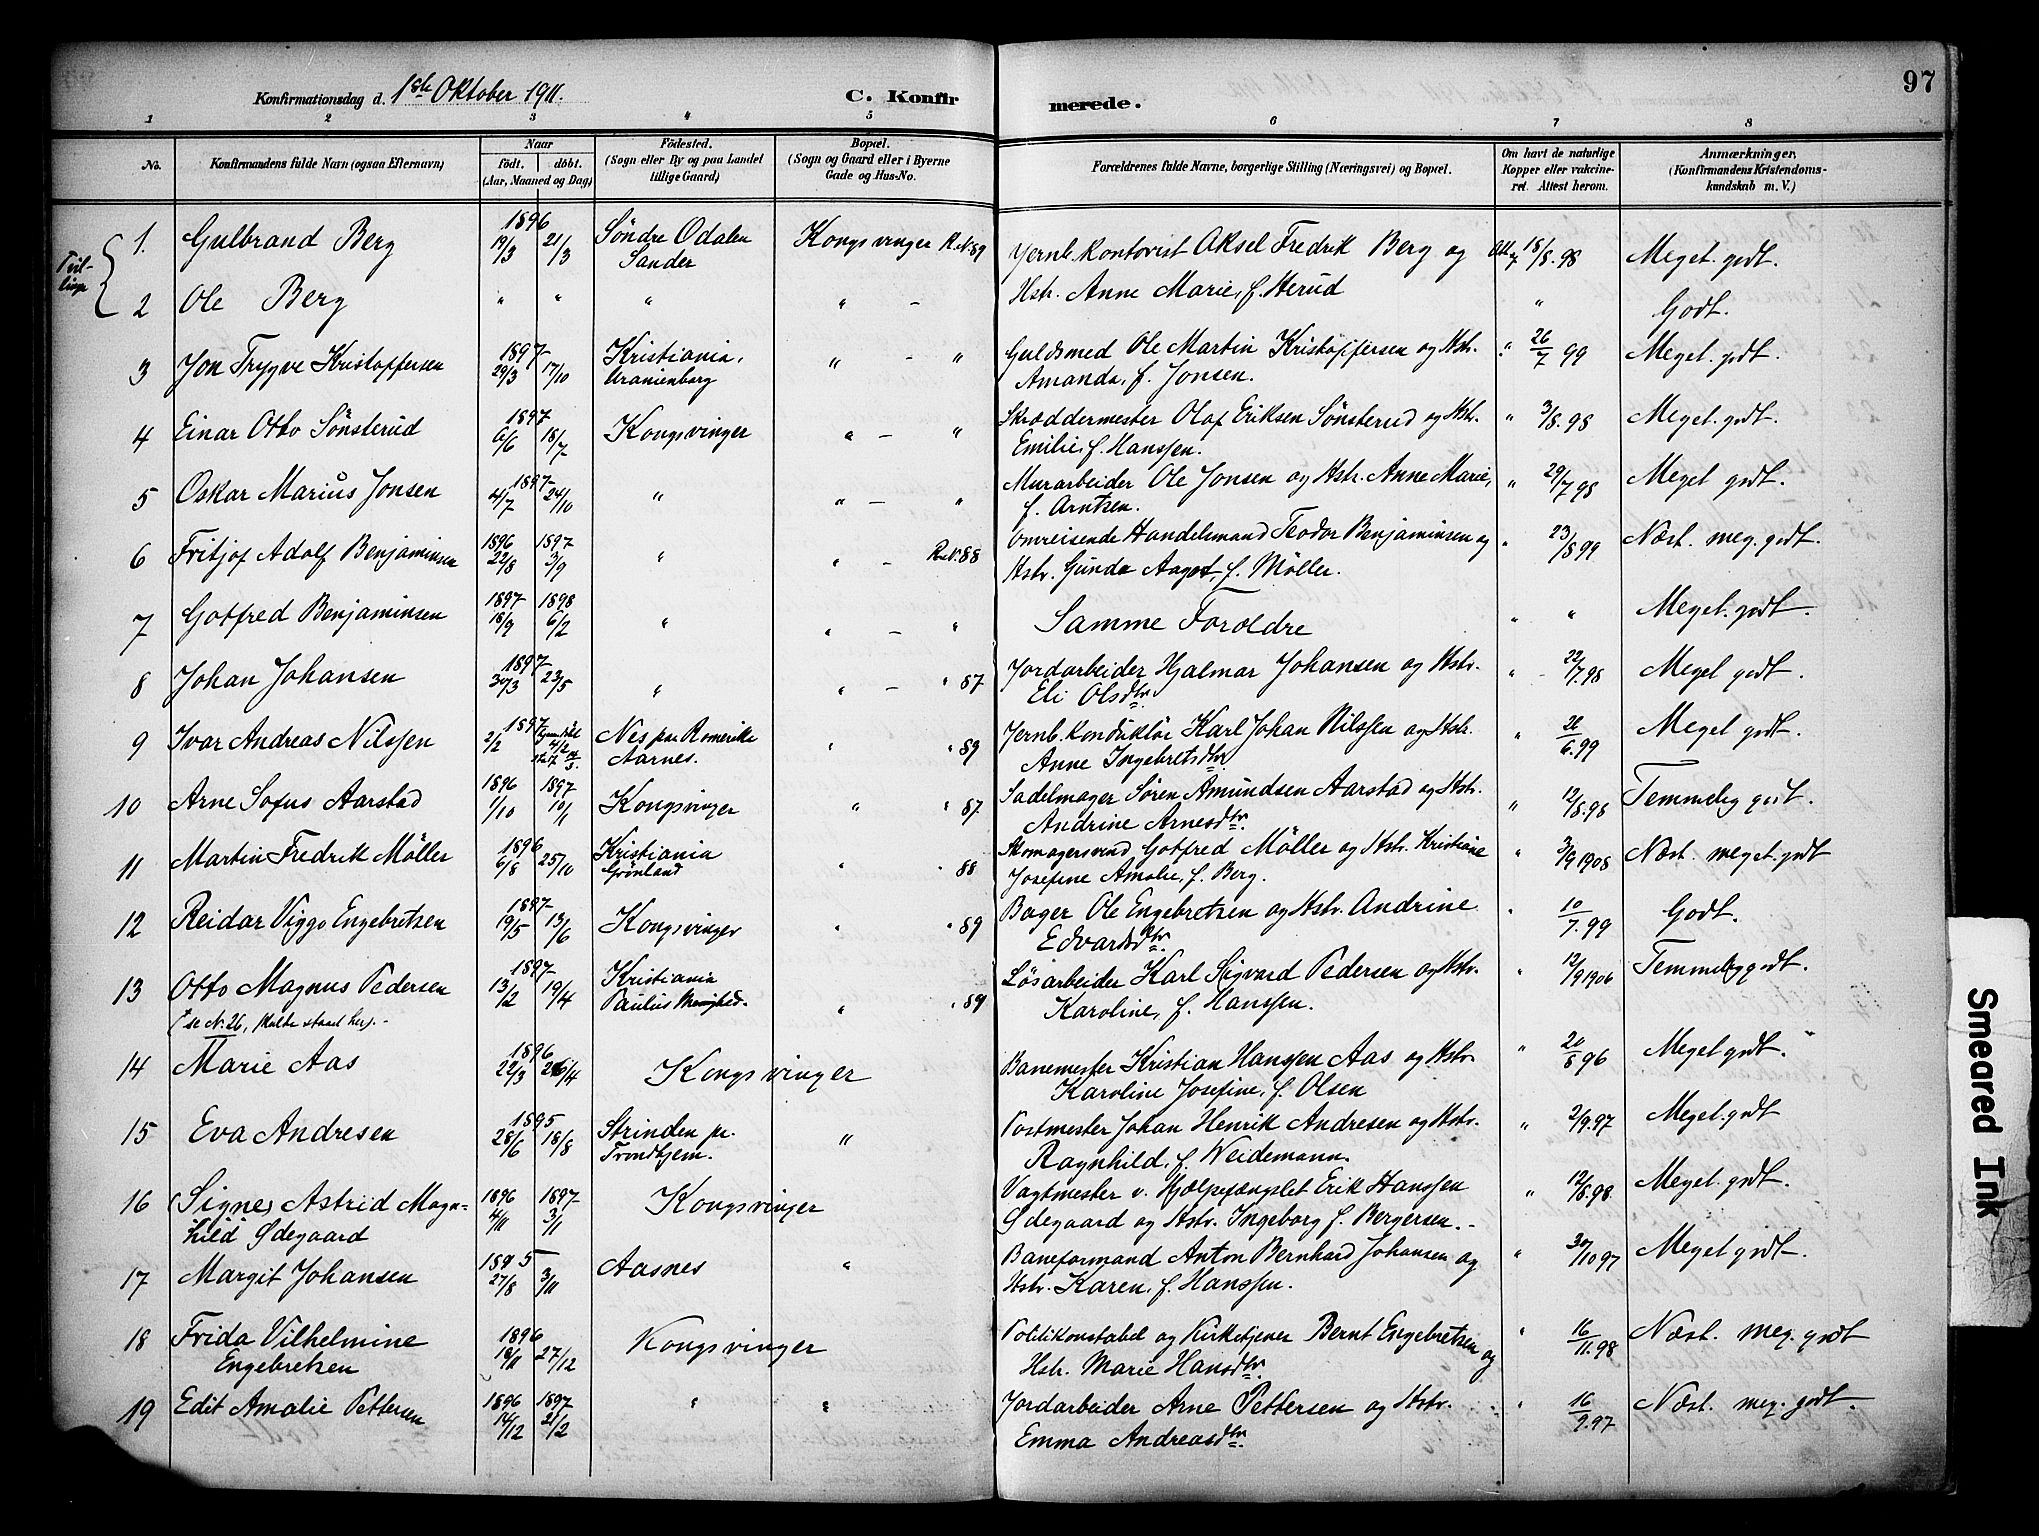 97
Konfirmationsdag d. 1ste Oktober 1911. C. Konfirmerede.
1 2 3 4 5 6 7 8
No. Konfirmandens fulde Navn (ogsaa Efternavn) Naar født. døbt. (Aar, Maaned og Dag) Fødested. (Sogn eller By og paa Landet tillige Gaard) Bopæl. (Sogn og Gaard eller i Byerne Gade og Hus-No. Forældrenes fulde Navne, borgerlige Stilling (Næringsvei) og Bopæl. Om havt de naturlige Kopper eller vakcineret. Attest herom. Anmærkninger, (Konfirmandens Kristendomskundskab m. V.)
1. Gulbrand Berg 1896 19/3 21/3 Søndre Odalen Sander Kongsvinger R.N. 89 Jernb. kontorist Aksel Fredrik Berg og Att. 18/8.98 Meget godt.
2 Ole Berg " " " " - Hstr. Anne Marie, f. Herud " Godt.
3 Jon Trygve Kristoffersen 1897 29/3 17/10 Kristiania, Uranienborg " - " Guldsmed Ole Martin Kristoffersen og Hstr. Amanda, f. Jonsen. " 26/7 99 Meget godt.
4 Einar Otto Sønsterud 1897 6/6 18/7 Kongsvinger " - " Skræddermester Olaf Eriksen Sønsterud og Hstr. Emilie, f. Hanssen. " 3/8.98 Meget godt.
5 Oskar Marius Jonsen 1897 4/7 24/10 " " - " Murarbeider Ole Jonsen og Hstr. Anne Marie, f. Arntsen. " 29/7 98 Meget godt.
6 Fritjof Adolf Benjaminsen 1896 22/8 1897 3/9 " " - R.N. 88 Omreisende Handelsmand Teodor Benjaminsen og Hstr. Gunda Aagot, f. Møller. " 23/8 99 Næst. meg. godt.
7 Gotfred Benjaminsen 1897 18/9 1898 6/2 " " - " Samme Foroldre " " Meget godt.
8 Johan Johansen 1897 30/3 23/5 " " - " 87 Jordarbeider Hjalmar Johansen og Hstr. Eli Olsdtr. " - 22/7.98 Meget godt.
9 Ivar Andreas Nilssen 1897 2/2 Nes paa Romerike Aarnes. " " 89 Jernb. konduktør Karl Johan Nilssen og Hstr. Anne Ingebretsdtr. " 26/6.99 Meget godt.
10 Arne Sofus Aarstad 1896 1/10 1897 10/1 Kongsvinger " " 87 Sadelmager Søren Amundsen Aarstad og Hstr. Andrine Arnesdtr. " 12/8.98 Temmelig godt.
11 Martin Fredrik Møller 1896 6/8 25/10 Kristiania Grønland " " 88 Skomagersvend Gotfred Møller og Hstr. Kristiane Josefine Amalie, f. Berg. " 3/9 1908 Næst. meget godt
12 Reidar Viggo Engebretsen 1897 19/5 13/6 Kongsvinger " " 89 Bager Ole Engebretsen og Hstr. Andrine Edvardsdtr. " 10/7.99 Godt.
13 Otto Magnus Pedersen 1897 13/2 19/4 Kristiania Paulus Menighed. " " 89 Løsarbeider Karl Sigvard Pedersen og Hstr. Karoline, f. Hanssen. " 12/9 1906 Temmelig godt.
(se N. 26, skulde staaet her). -
14 Marie Aas 1896 22/3 26/4 Kongsvinger Banemester Kristian Hanssen Aas og Hstr. Karoline Josefine, f. Olsen " 20/8 96 Meget godt.
15 Eva Andresen 1895 28/6 18/8 Strinden pr. Trondhjem. " Postmester Johan Henrik Andresen og Hstr. Ragnhild, f. Weidemann. " 2/9.97 Meget godt
16 (Signe) Astrid Magnhild Ødegaard 1896 4/11 1897 3/1 Kongsvinger Vagtmester v. Hjælpefængslet Erik Hanssen Ødegaard og Hstr. Ingeborg f. Bergersen. - " 12/8.98 Meget godt.
17 Margit Johansen 1895 27/8 3/11 Aasnes " Baneformand Anton Bernhard Johansen og Hstr. Karen, f. Hanssen. " 30/10 97 Meget godt.
18 Frida Vilhelmine Engebretsen 1896 27/12 Kongsvinger Politikonstabel og Kirketjener Bernt Engebretsen og Hstr. Marie Hansdtr. " 16/11.98 Næst. meg. godt
19 Edit Amalie Pettersen 1896 14/12 1897 21/2 " " Jordarbeider Arne Pettersen og Hstr. Emma Andreasdtr. " 16/9.97 Næst. meg. godt.
Tvillinge
Smeared Ink